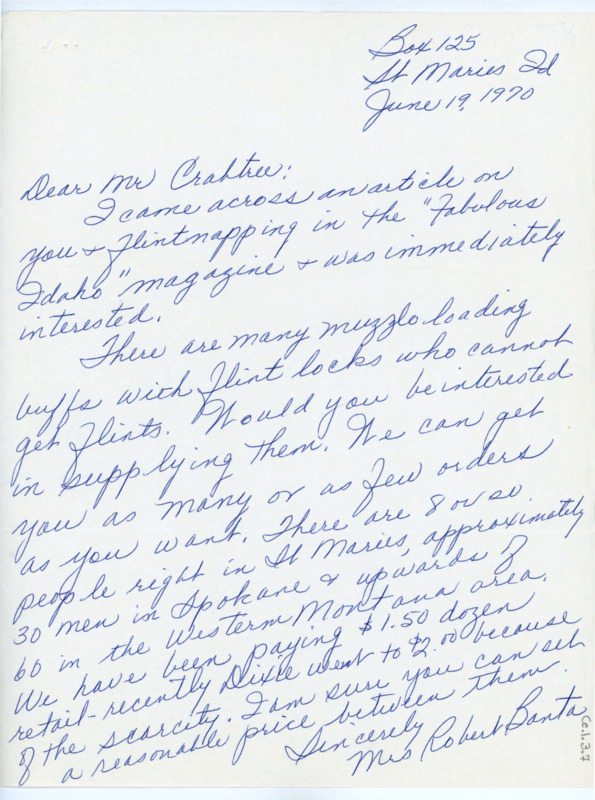 Box 125
St Maries Id
June 19, 1970
Dear Mr Crabtree:
I came across an article on
you & Flintnapping in the "Fabulous
Idaho" magazine & was immediately
interested.
There are many muzzloloading
buffs with Flint locks who cannot
get Flints. Would you be interested
in supplying them. We can get
you as many or as few orders
as you want. There are 8 or so
people right in St Maries, approximately
30 men in Spokane & upwards of
60 in the Western Montana area.
We have been paying $1.50 dozen
retail - recently Dixie went to $2.00 because
of the scarcity. I am sure you can set
a reasonable price between them.
Sincerely
Mrs Robert Banta
Cc.1.3.7